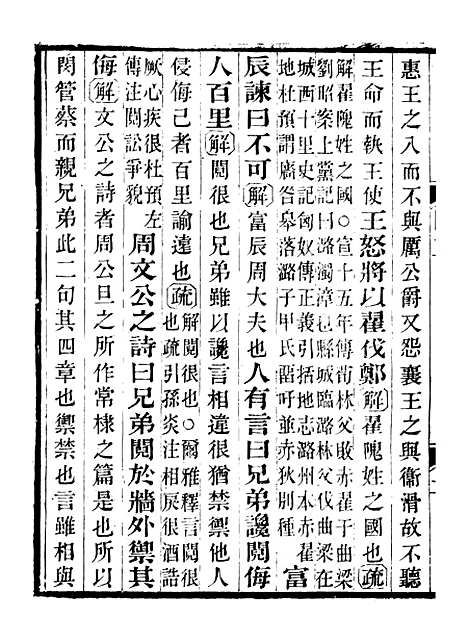 惠王之入而不與厲公爵又怨襄王之與衞滑故不聽
王命而執王使王怒將以翟伐鄭解翟隗姓之國也疏
解翟隗姓之國○宣十五年傳荀林父敗赤翟于曲梁
劉昭案上黨記曰潞濁漳也縣城臨潞林父伐曲梁在
城西十里史記匈奴傳正義引括地志潞州本赤翟
地杜預謂廧咎皋落潞子甲氏畱吁並赤狄別種
富
辰諫曰不可解富辰周大夫也人有言曰兄弟讒鬩侮
人百里解鬩很也兄弟雖以讒言相違很猶禁禦他人
侵侮己者百里諭遠也疏
解鬩很也○爾雅釋言鬩很
也疏引孫炎注相戾很酒誥
厥心疾很杜預左
傳注鬩訟爭貌
周文公之詩曰兄弟鬩於牆外禦其
侮解文公之詩者周公旦之所作常棣之篇是也所以
閔管蔡而親兄弟此二句其四章也禦禁也言雖相與